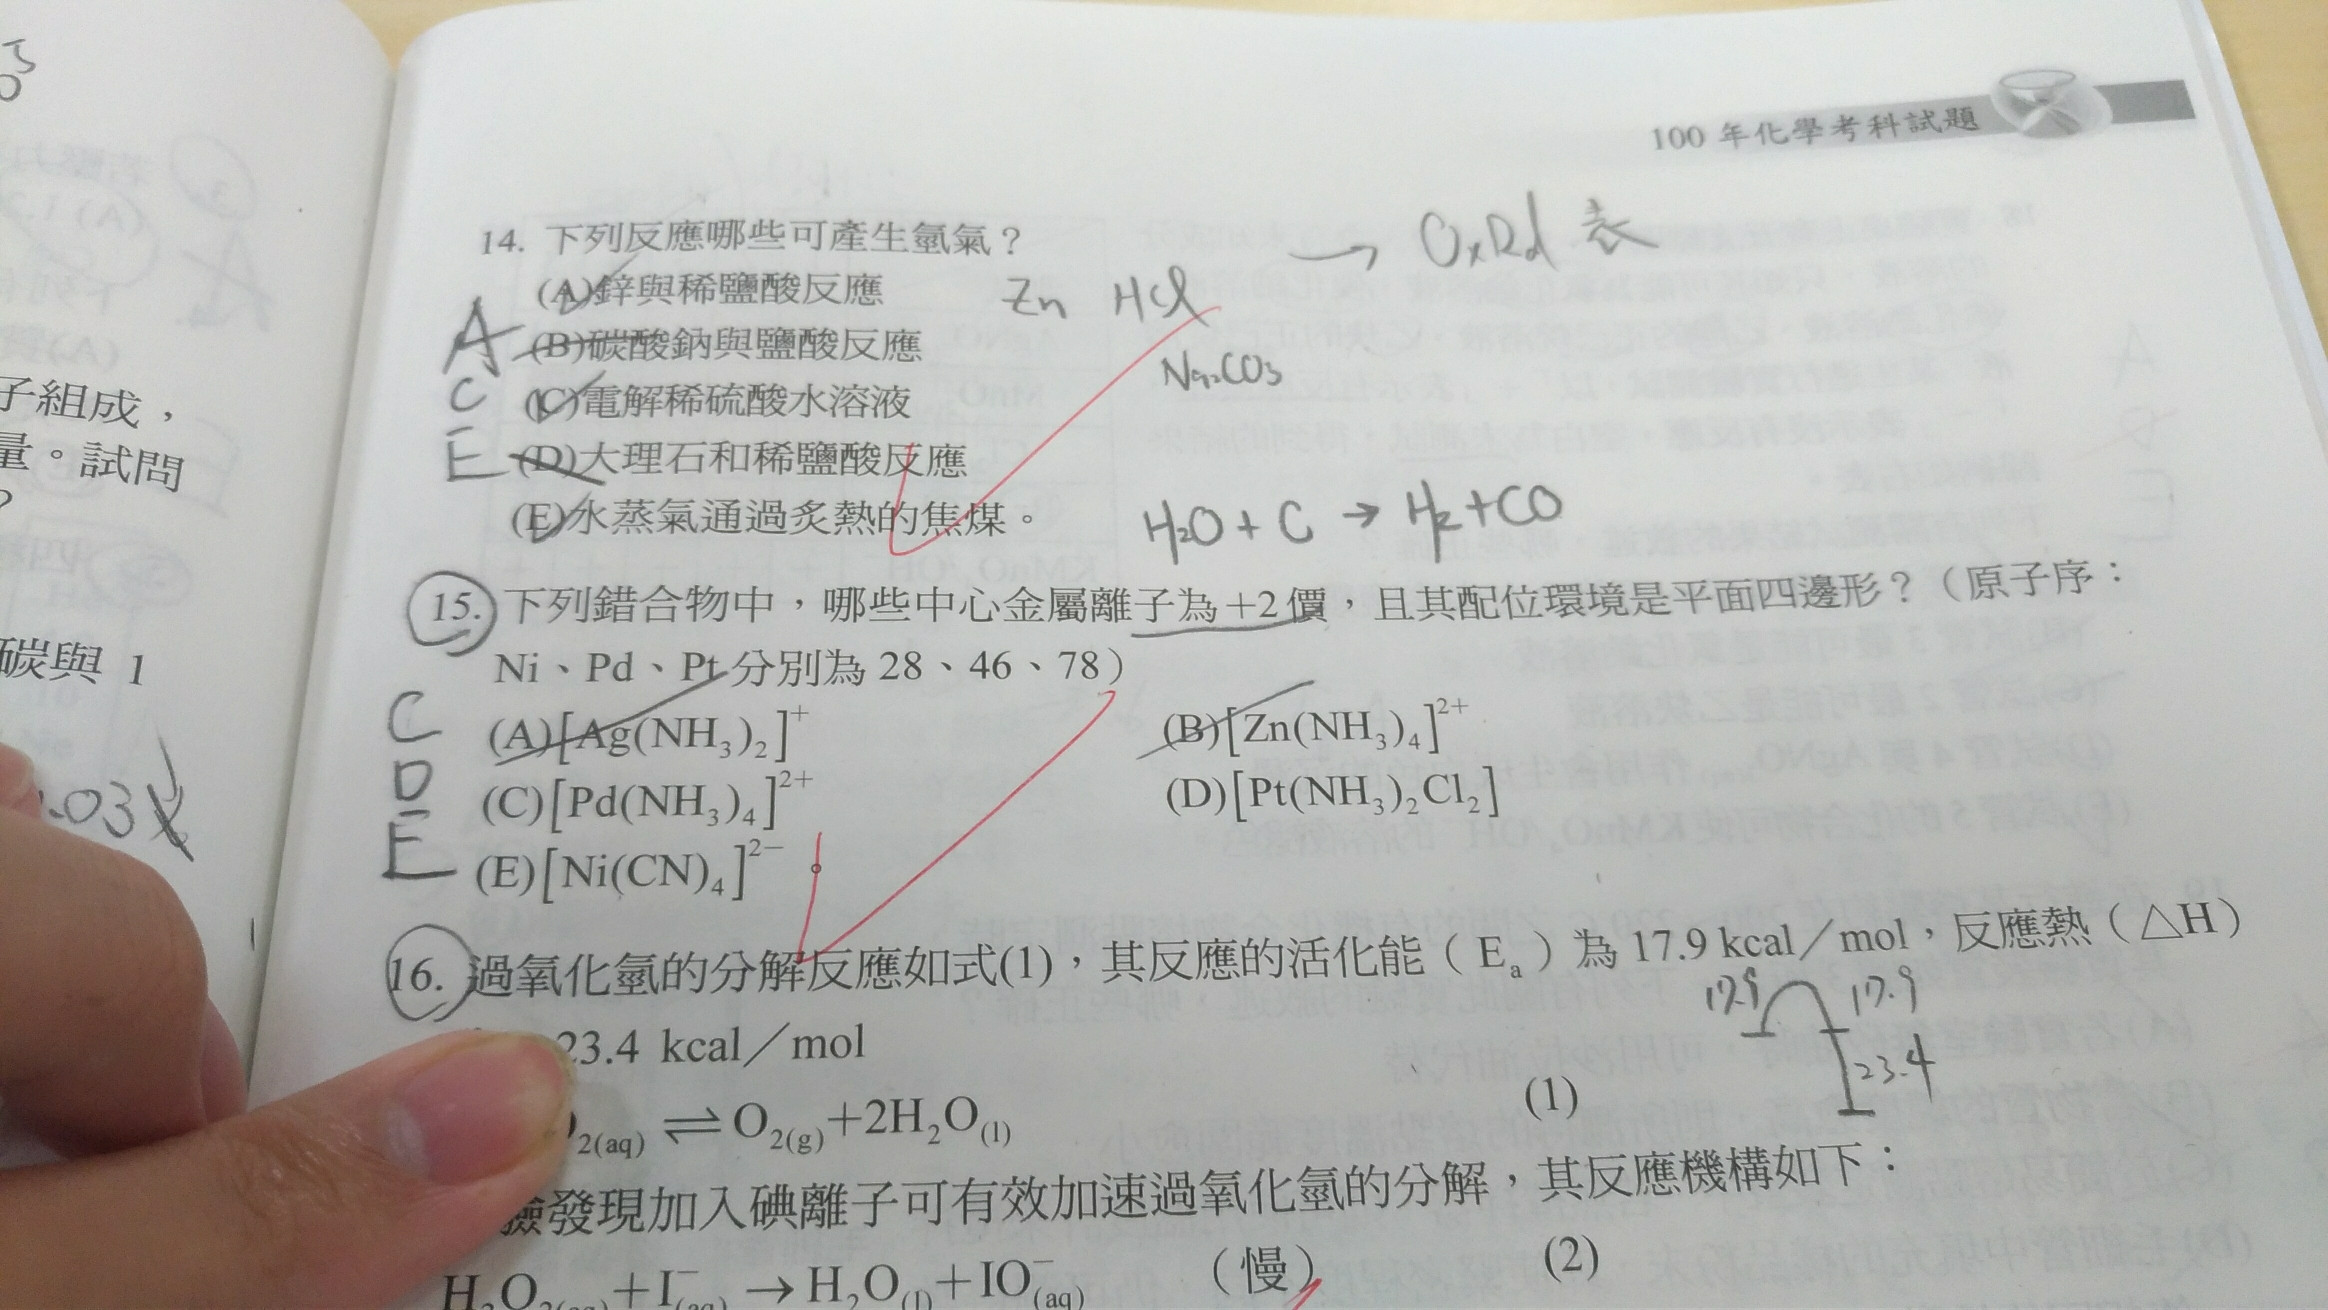 100 年化學考科試題
→ OxRd 表
14. 下列反應哪些可產生氫氣？
(A)鋅與稀鹽酸反應
Zn HCl
(B)碳酸鈉與鹽酸反應
Na₂CO₃
(C)電解稀硫酸水溶液
(D)大理石和稀鹽酸反應
(E)水蒸氣通過炙熱的焦煤。
H₂O + C → H₂ + CO
A
C
E
15. 下列錯合物中，哪些中心金屬離子為 +2 價，且其配位環境是平面四邊形？（原子序：
Ni、Pd、Pt 分別為 28、46、78）
(A)[Ag(NH₃)₂]⁺ (B)[Zn(NH₃)₄]²⁺
(C)[Pd(NH₃)₄]²⁺ (D)[Pt(NH₃)₂Cl₂]
(E)[Ni(CN)₄]²⁻。
C
D
E
16. 過氧化氫的分解反應如式(1)，其反應的活化能（Eₐ）為 17.9 kcal／mol，反應熱（△H）
23.4 kcal／mol
17.9 17.9
23.4
₂(aq) ⇌ O₂(g)+2H₂O(l) (1)
驗發現加入碘離子可有效加速過氧化氫的分解，其反應機構如下：
H₂O₂(aq)+I⁻(aq) → H₂O(l)+IO⁻(aq) （慢） (2)
子組成，
量。試問
？
碳與 1
.03